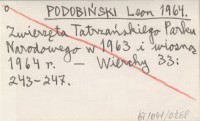 PODOBIŃSKI Leon 1964.
Zwierzęta Tatrzańskiego Parku
Narodowego w 1963 i wiosną
1964 r. — Wierchy 33:
243-247.